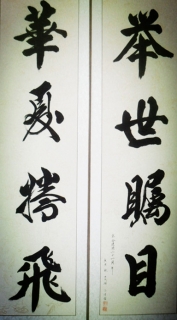 举世瞩目
華夏腾飛